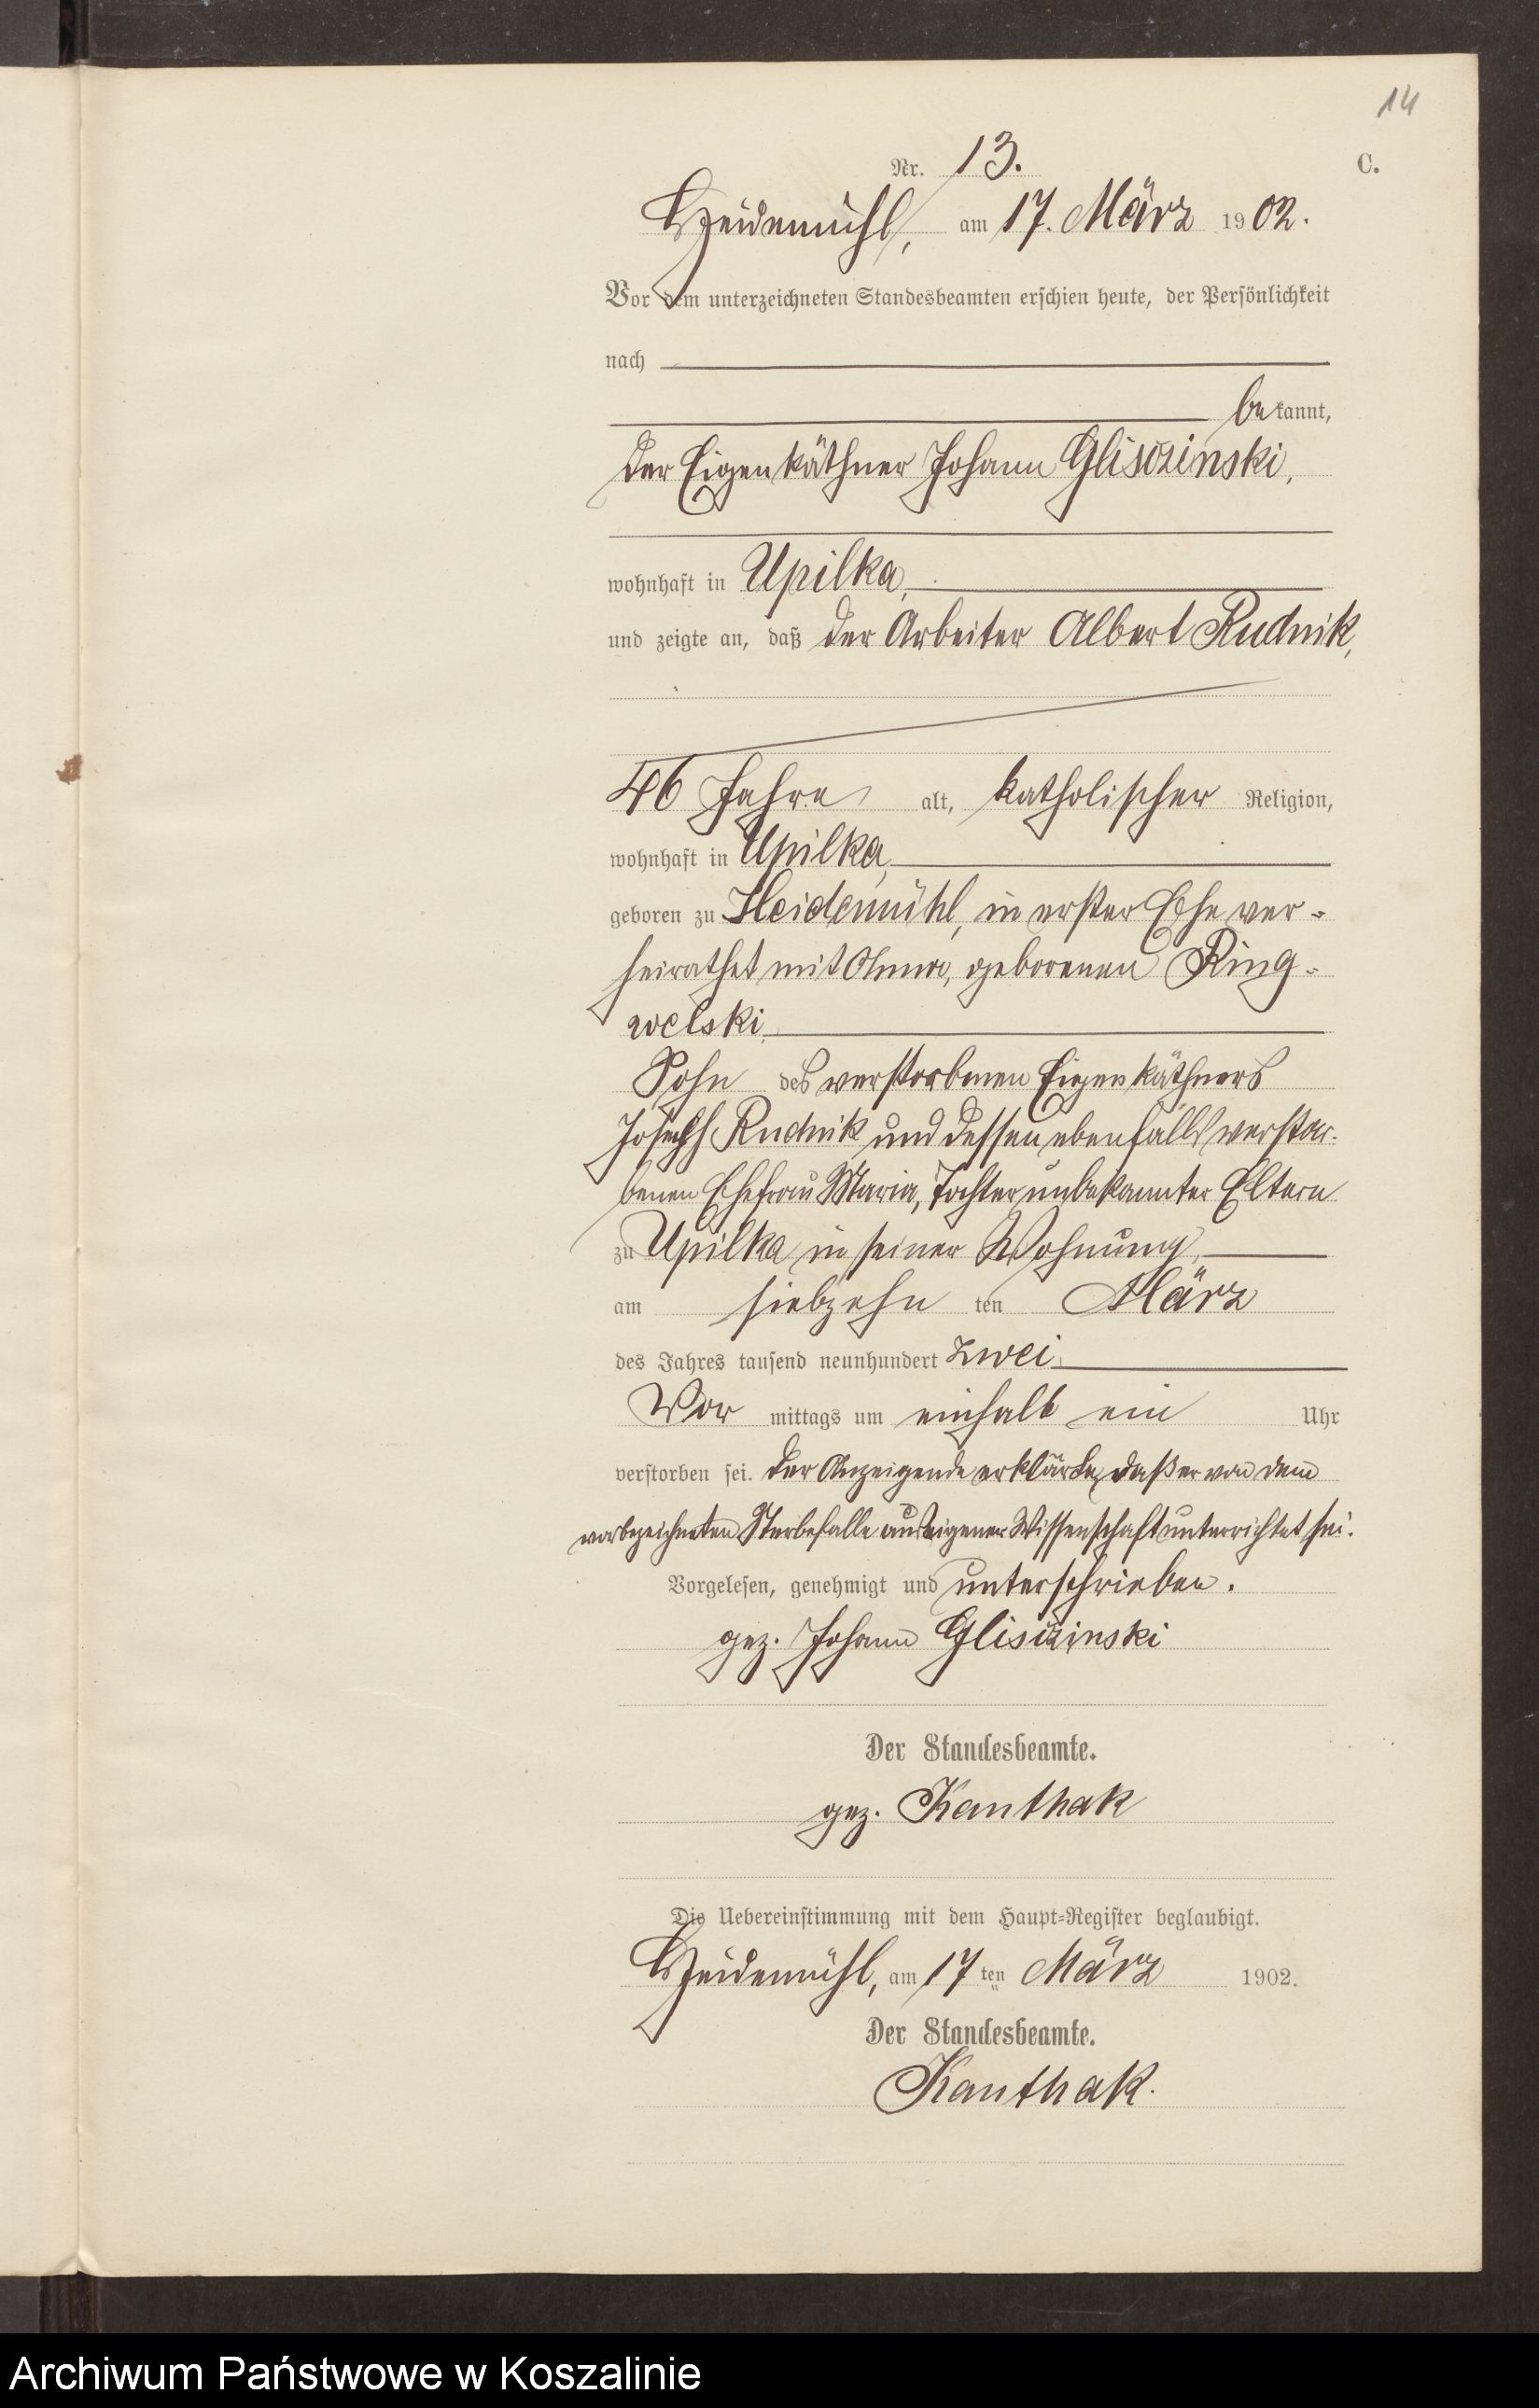 14
Nr. 13.
C.
Heidemühl, am 17. März 1902.
Vor dem unterzeichneten Standesbeamten erschien heute, der Persönlichkeit
nach
bekannt,
der Eigenkäthner Johann Glisczinski,
wohnhaft in Upilka,
und zeigte an, daß der Arbeiter Albert Rudnik,
46 Jahre alt, katholischer Religion,
wohnhaft in Upilka,
geboren zu Heidemühl, in erster Ehe ver-
heirathet mit Anna, geborenen Ring-
welski,
Sohn des verstorbenen Eigenkäthners
Joseph Rudnik und dessen ebenfalls verstor-
benen Ehefrau Maria, Tochter unbekannter Eltern
zu Upilka in seiner Wohnung,
am siebzehnten März
des Jahres tausend neunhundert zwei
Vormittags um einhalb ein Uhr
verstorben sei. Der Anzeigende erklärte, daß er von dem
vorbezeichneten Sterbefalle aus eigener Wissenschaft unterrichtet sei.
Vorgelesen, genehmigt und unterschrieben.
gez. Johann Glisczinski
Der Standesbeamte.
gez. Kanthak
Die Uebereinstimmung mit dem Haupt-Register beglaubigt.
Heidemühl, am 17ten März 1902.
Der Standesbeamte.
Kanthak.
Archiwum Państwowe w Koszalinie